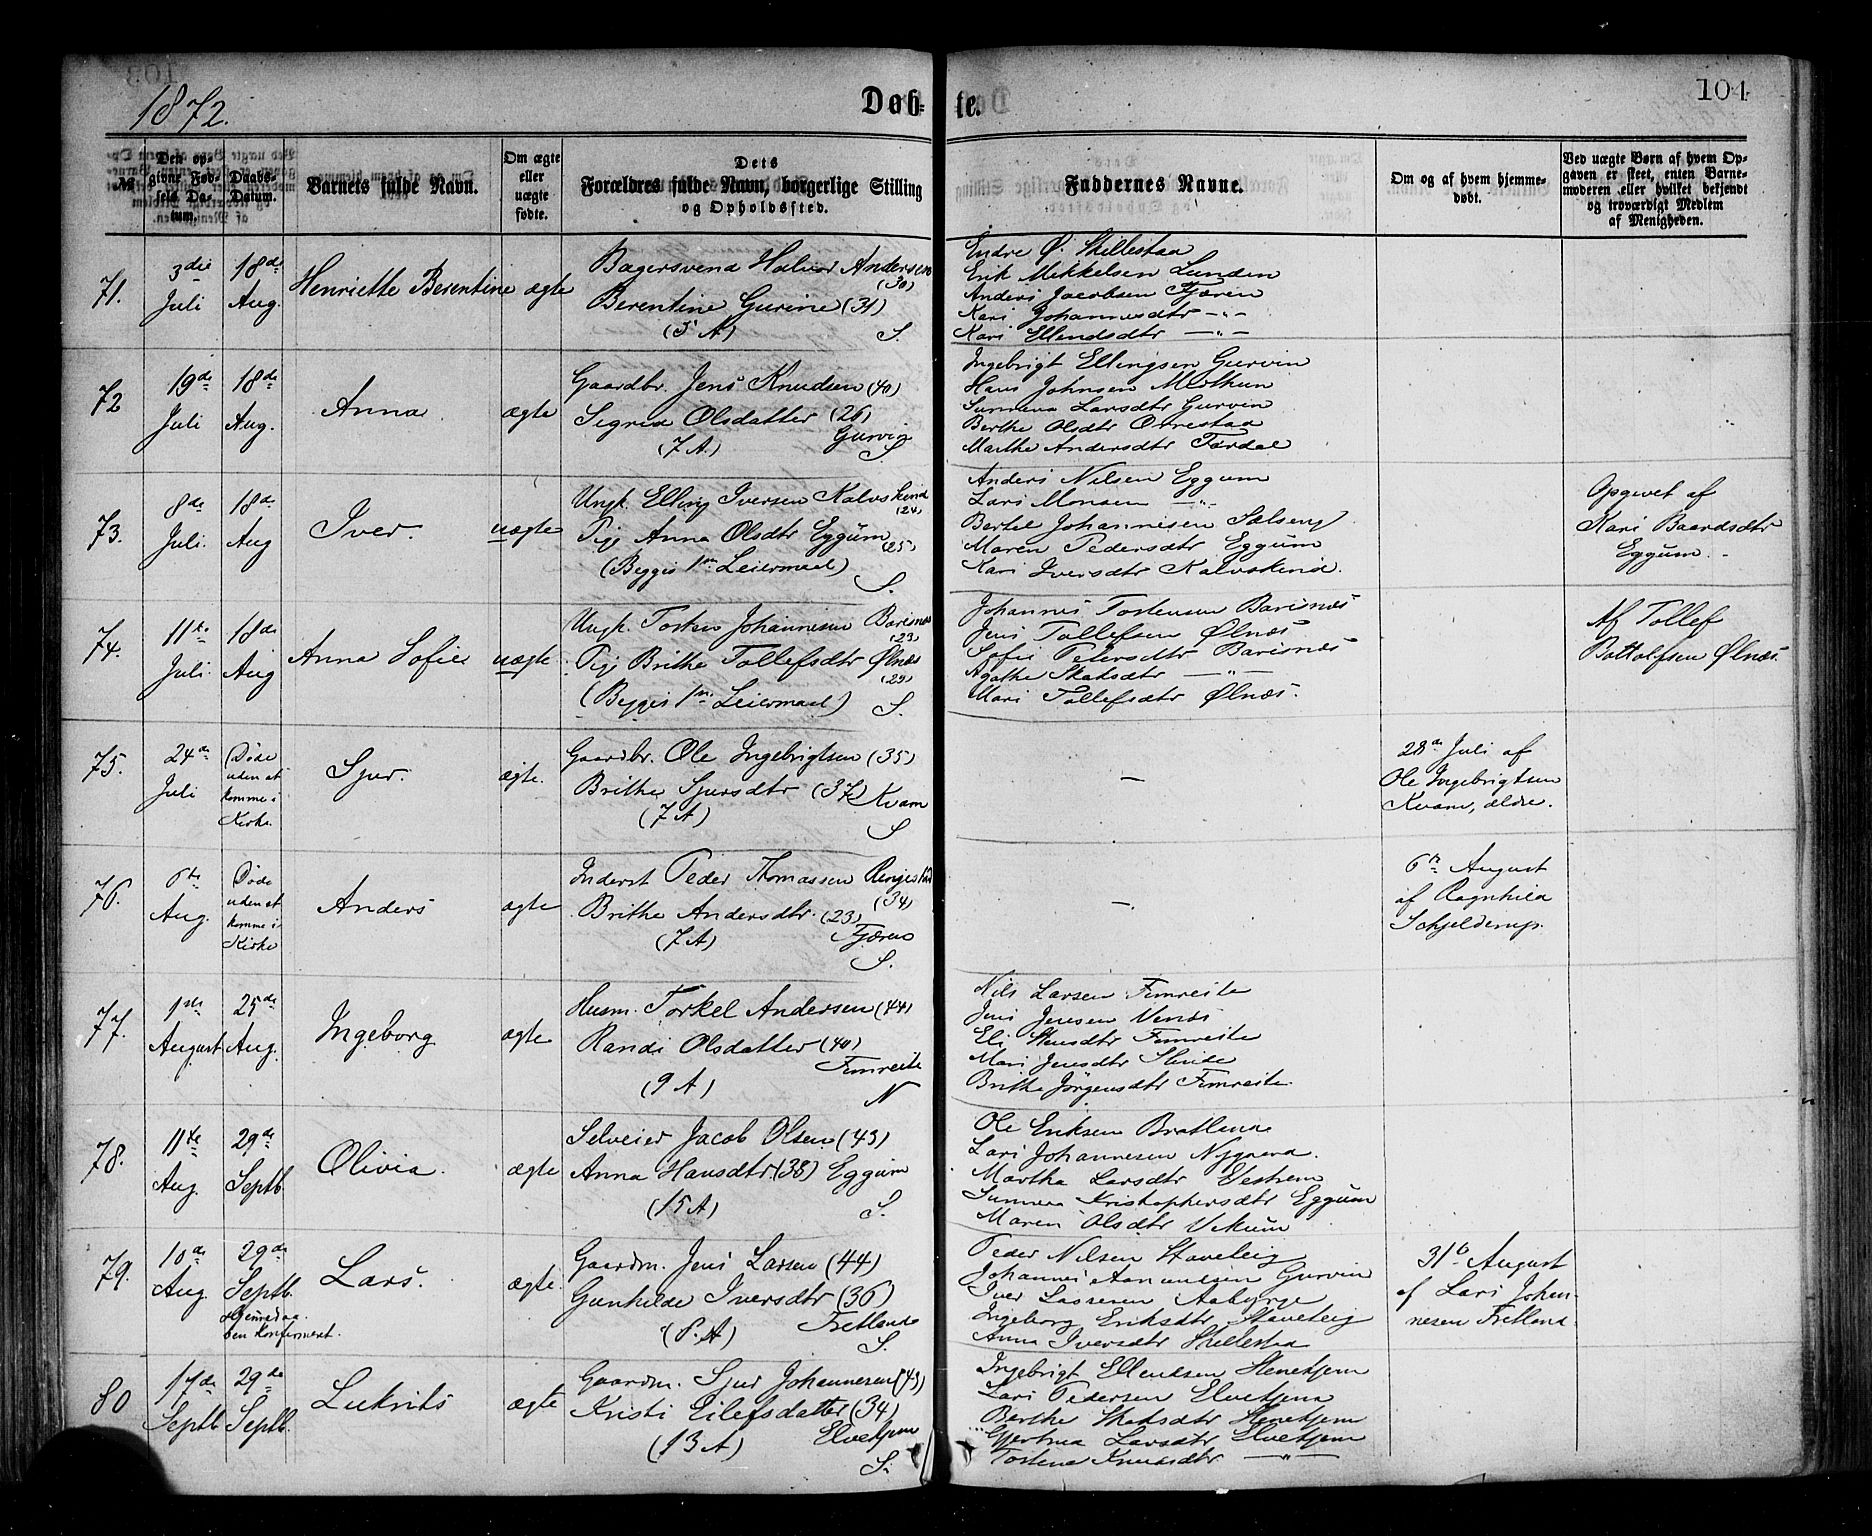 1872.
Døb-
te.
104
№
Den opgivne Fødsels Datum.
Daabs-Datum.
Barnets fulde Navn.
Om ægte eller uægte fødte.
Dets Forældres fulde Navn, borgerlige Stilling og Opholdssted.
Faddernes Navne.
Om og af hvem hjemmedøbt.
Ved uægte Børn af hvem Opgaven er skeet, enten Barnemoderen eller hvilket bekjendt og troværdigt Medlem af Menigheden.
71.
3die Juli
18de Aug.
Henriette Berentine
ægte
Bagersvend Halvor Andersen (30)
Berentine Gurine (31)
(5 A)
S.
Endre Ø. Skillestad
Erik Mikkelsen Lunden
Anders Jacobsen Fjæren
Kari Johannesdtr —"—
Kari Ellendsdtr —"—
72
19de Juli
18de Aug.
Anna
ægte
Gaardbr. Jens Knudsen (40)
Sigrid Olsdatter (26)
Gurvin
(7 A.)
S.
Ingebrigt Ellingsen Gurvin
Hans Johnsen
Sunneva Larsdtr Gurvin
Berthe Olsdtr
Marthe Andersdtr
73.
8de Juli.
18de Aug
Iver.
uægte
Ungk. Elling Iversen Kalvskind (24)
Pige Anna Olsdtr Eggum (25)
(Begges 1ste Leiermaal)
S.
Anders Nilsen Eggum
Lars Monsen —"—
Bertel Johannesen Sælseng
Maren Pedersdtr Eggum
Kari Iversdtr Kalvskind.
Opgivet af
Kari Baardsdtr
Eggum.
74.
11te Juli.
18de Aug
Anna Sofie
uægte
Ungk. Tosten Johannesen Barsnæs (23)
Pige Brithe Tollefsdtr Ølnæs (29)
(Begges 1ste Leiermaal)
S.
Johannes Tostensen Barsnæs
Jens Tollefsen Ølnæs
Sofie Petersdtr Barsnæs
Agathe Skaksdtr —"—
Mari Tollefsdtr Ølnæs.
Af Tollef
Bottolfsen Ølnæs.
75.
24de Juli
(Døde uden at komme i Kirke.
Sjur.
ægte.
Gaardbr. Ole Ingebrigtsen (35)
Brithe Sjursdtr (37) Kvam
(7 A)
S
—
28de Juli af
Ole Ingebrigtsen
Kvam, ældre.
76.
6te Aug.
Døde uden at komme i Kirke
Anders
ægte
Inderst Peder Thomassen (34)
Brithe Andersdtr. (23)
Fjæren
(7 A)
S.
—
6te August
af Ragnhild
Schjelderup.
77.
1ste August
25de Aug.
Ingeborg
ægte
Husm. Torkel Andersen (44)
Randi Olsdatter (40)
Fimreite
(9 A)
N
Nils Larsen Fimreite
Jens Jensen Venæs
Eli Stensdtr Fimreite
Mari Jensdtr Slinde
Brithe Jørgensdtr Fimreite.
78.
11te Aug.
29de Septb.
Olivia.
ægte
Selveier Jacob Olsen (43)
Anna Hansdtr (38) Eggum
(15 A)
S.
Ole Eriksen Bratlend
Lars Johannesen Nygaard.
Martha Larsdtr
Sunneva Kristophersdtr Eggum
Maren Olsdtr Vikum
79.
10de Aug.
29de Septb.
Hjemmedaaben konfirmeret.
Lars.
ægte
Gaardm. Jens Larsen (44)
Gunhilde Iversdtr (36)
Fretland
S.
Peder Nilsen Stavleig
Johannes Aamundsen Gurvin
Iver Lassesen Aaberge
Ingeborg Eriksdtr Stavleig
Anna Iversdtr Skillestad
31te August
af Lars Johannesen Fretland.
80
17de Septb
29de Septb.
Lukrits
ægte
Gaardm. Sjur Johannesen (43)
Kristi Eilefsdatter (34)
Elvekjem
(13 A)
S.
Ingebrigt Ellendsen Henekjem
Lars Pedersen Elvekjem
Berthe Skaksdtr Henekjem
Gjertrud Larsdtr Elvekjem
Tostena Knudsdtr —"—